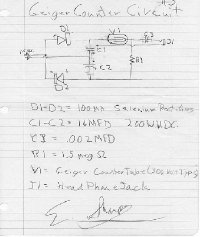 Geiger Counter Circuit
D1
V1
R2
J1
C1
R1
C2
D2
D1-D2 = 100ma Selenium Rectifiers
C1-C2 = 16MFD 200WVDC
C3 = .002MFD
R1 = 1.5 meg Ω
V1 = Geiger Counter Tube (300 Volt Type)
J1 = Head Phone Jack